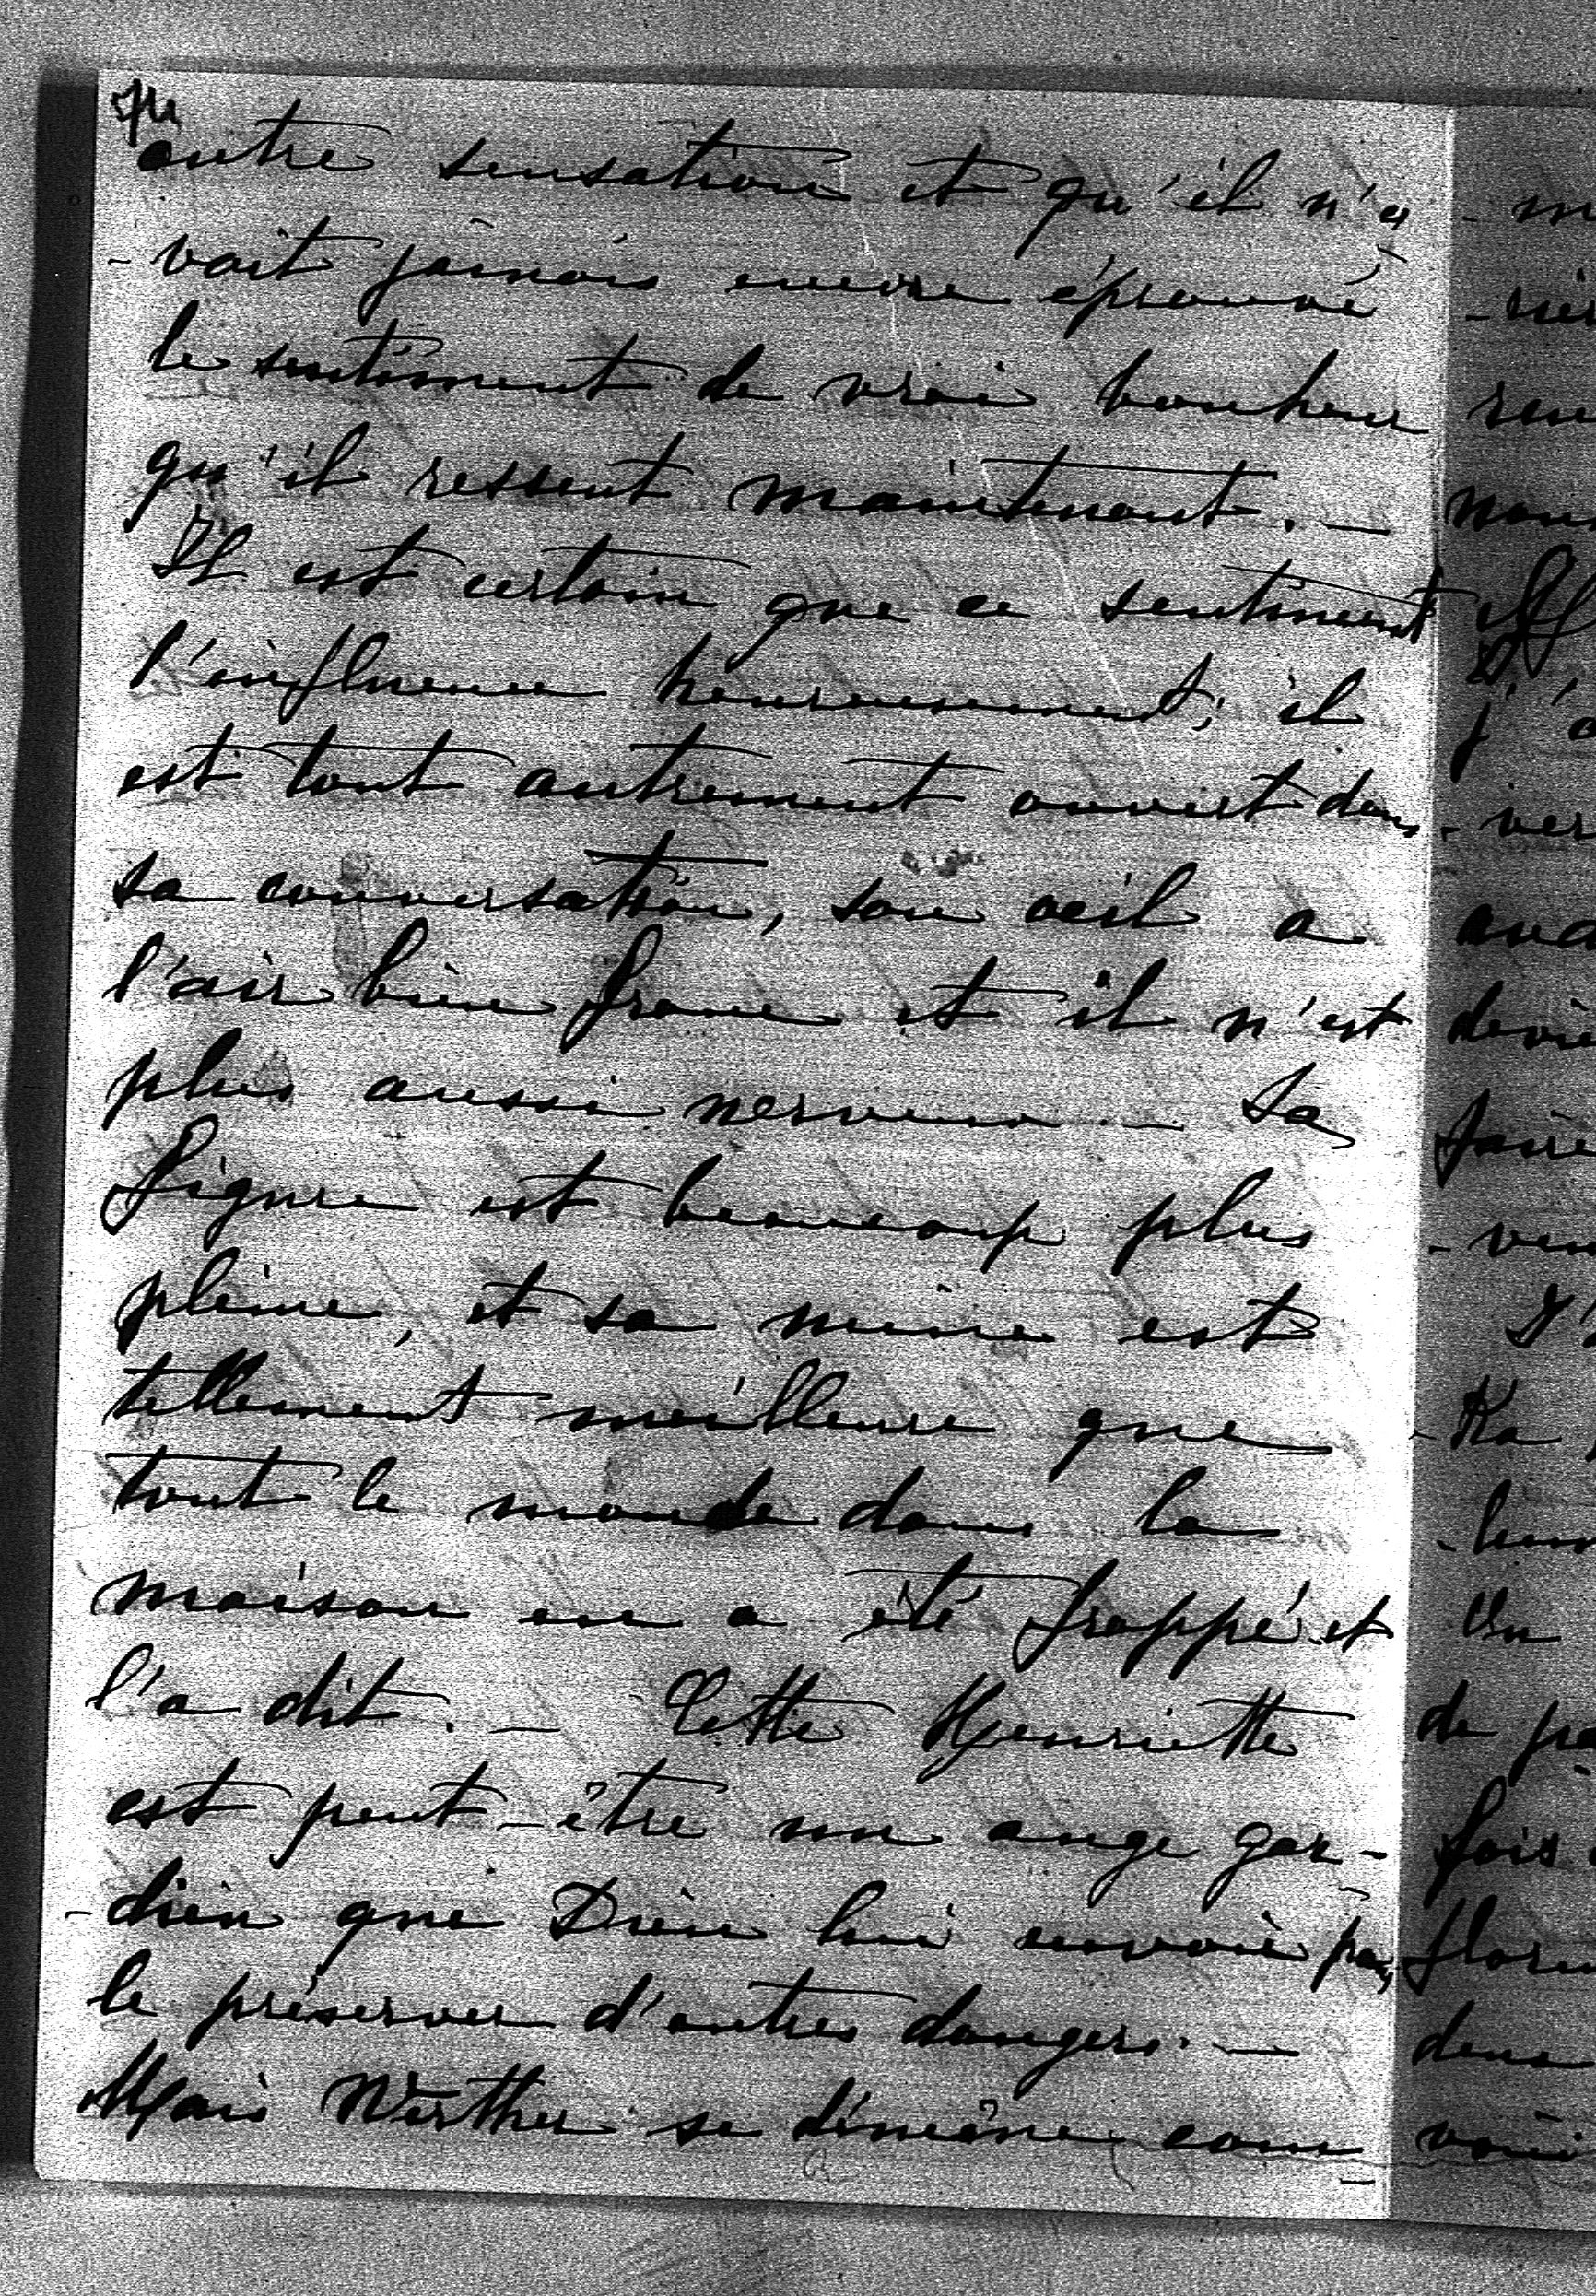 autre sensation et qu'il n'a
-vait jamais encore éprouvé
le sentiment de vrai bonheur
qu'il ressent maintenant. —
Il est certain que ce sentiment
l'influence heureusement; il
est tout autrement ouvert dans
sa conversation, son oeil a
l'air bien franc et il n'est
plus aussi nerveux — Sa
figure est beaucoup plus
pleine, et sa mine est
tellement meilleure que
tout le monde dans la
maison en a été frappé et
l'a dit. — Cette Henriette
est peut-être un ange gar-
-dien que Dieu lui envoie pour
le préserver d'autres dangers. —
Mais Werther se démène com-